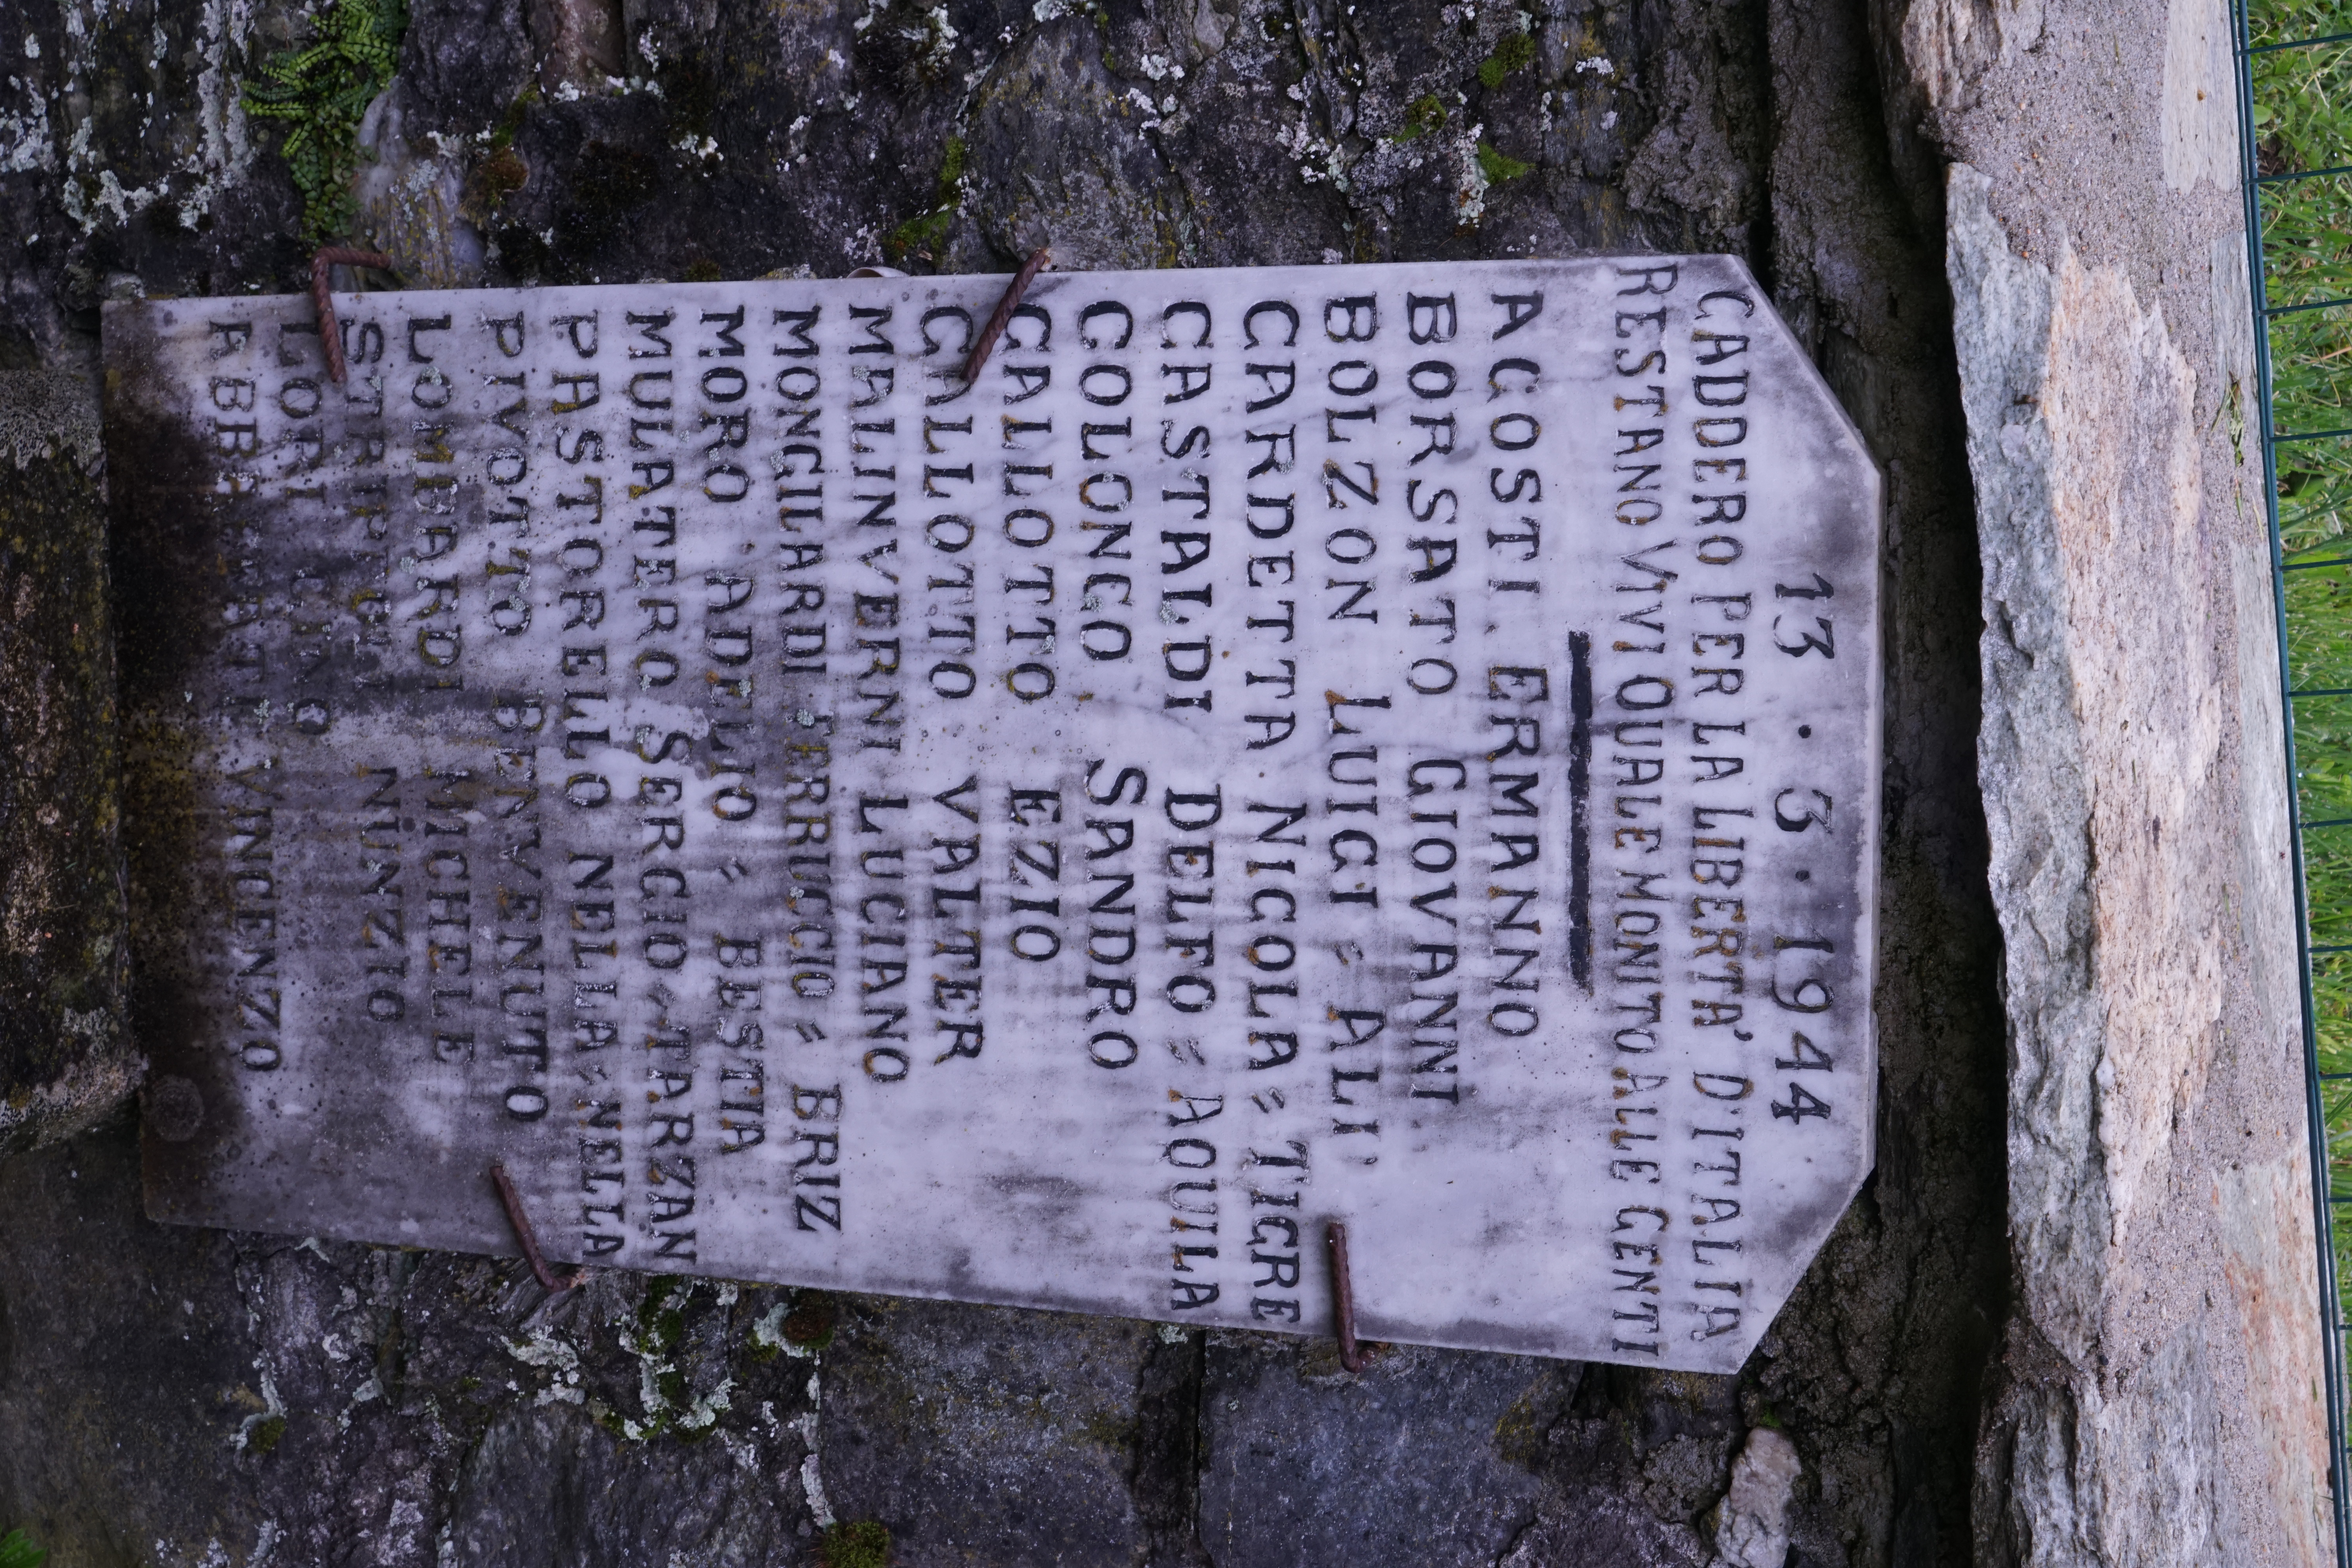 13 · 3 · 1944
CADDERO PER LA LIBERTA' D'ITALIA
RESTANO VIVI QUALE MONITO ALLE GENTI
AGOSTI ERMANNO
BORSATO GIOVANNI
BOLZON LUIGI = ALI'
CARDETTA NICOLA = TIGRE
CASTALDI DELFO = AQUILA
COLONGO SANDRO
GALLOTTO EZIO
GALLOTTO VALTER
MALINVERNI LUCIANO
MONGILARDI FERRUCCIO = BRIZ
MORO ADELIO = BESTIA
MULATERO SERGIO = TARZAN
PASTORELLO NELLA = NELLA
PIVOTTO BENVENUTO
LOMBARDI MICHELE
NUNZIO
LORI LINO
VINCENZO